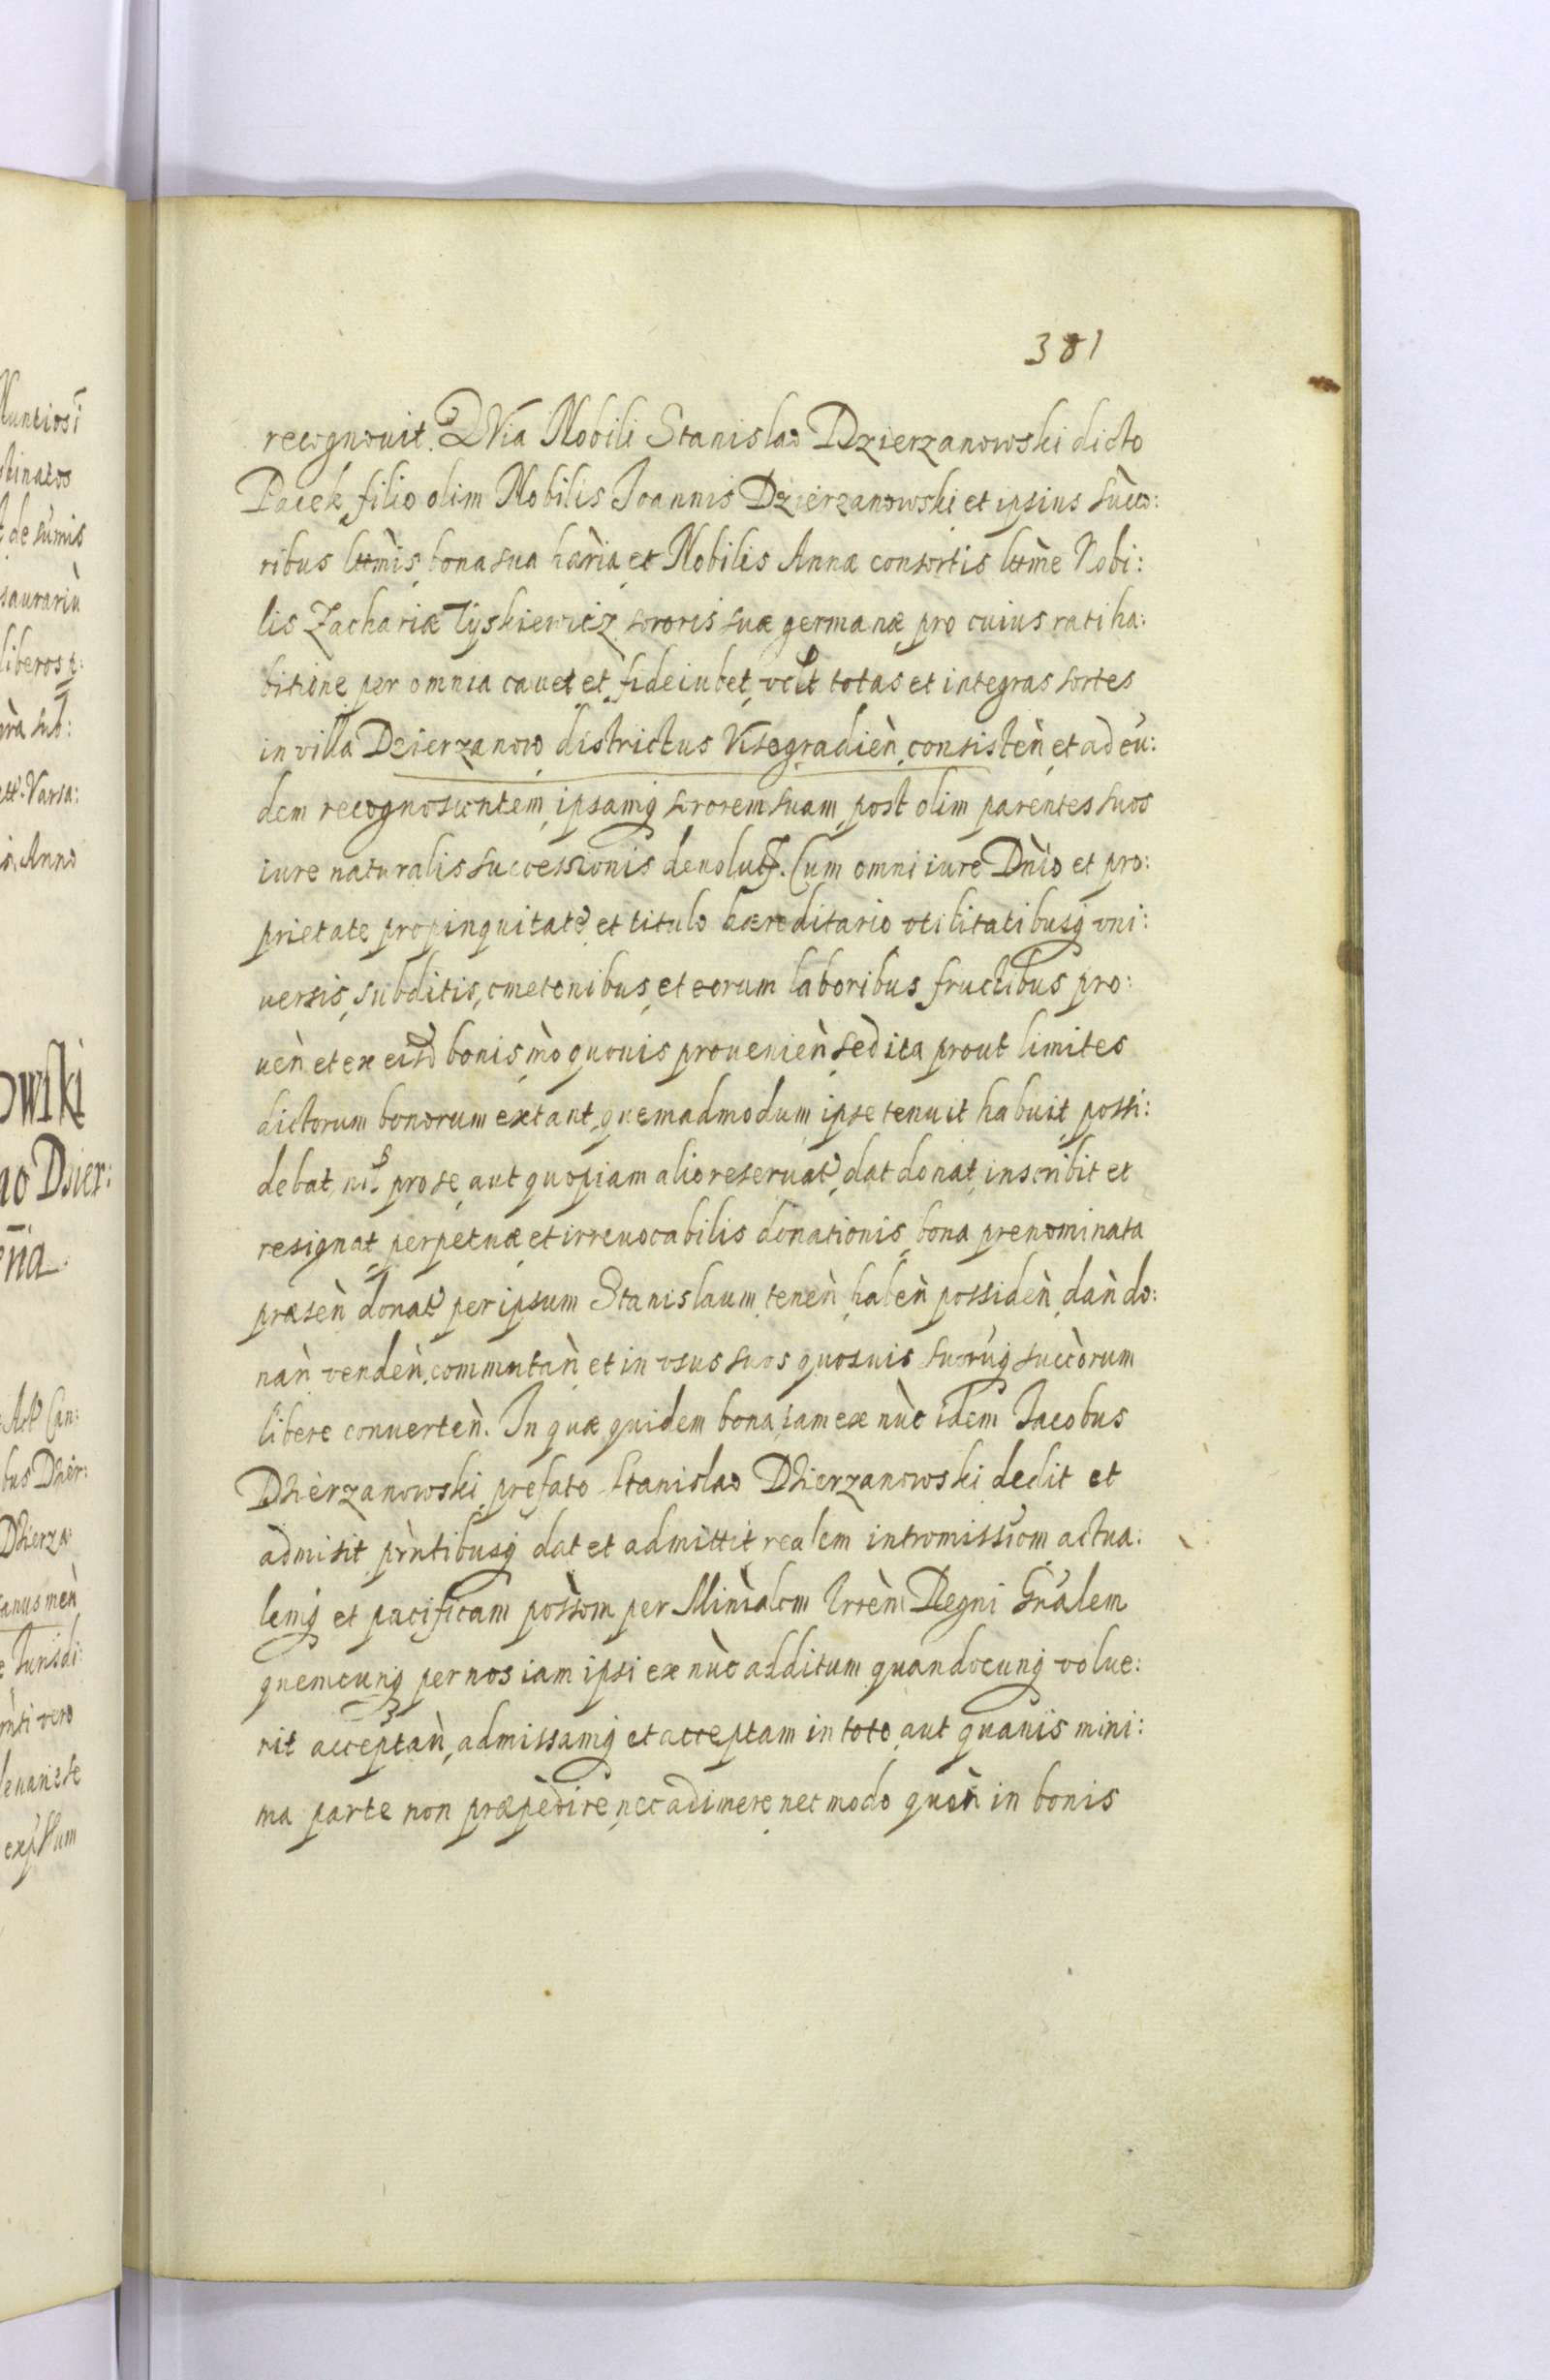 381
recognovit. Quia Nobili Stanislao Dzierzanowski dicto
Pacek filio olim Nobilis Joannis Dzierzanowski et ipsius sùcco:
ribus lttmìs bona sua hària et Nobilis Annæ consortis lttm̀e Nobi:
lis Zachariæ Tyskiewicz sororis suæ germanæ pro cuius ratiha:
bitione per omnia cauet et fideiubet, vdlt totas et integras sortes
in villa Dzierzanow districtus Visogradieǹ consisteǹ et ad eū:
dem recognoscentem ipsamq sororem suam post olim parentes suos
iure naturalis successionis deuolut. Cum omni iure Dǹio et pro:
prietate propinquitate et titulo hæreditario vtilitatibusq vni:
uersis, subditis, cmetonibus, et eorum laboribus fructibus pro:
ueǹ et ex eisd bonis m̀o quouis prouenieǹ sed ita prout limites
dictorum bonorum extant, quemadmodum ipse tenuit habuit possi:
debat, nil pro se aut quopiam alio reseruat, dat donat inscribit et
resignat perpetuæ et irreuocabilis donationis bona prenominata
præseǹ donat per ipsum Stanislaum teneǹ habeǹ possideǹ daǹ do:
naǹ vendeǹ commutaǹ et in vsus suos quosuis suorūq succòrum
libere conuerteǹ. In quæ quidem bona iam ex nùc idem Jacobus
Dzierzanowski prefato Stanislao Dzierzanowski dedit et
admisit pr̀ntibusq dat et admittit realem intromissiom actua:
lemq et pacificam possòm per Minìalem Irrèm Regni Gnàlem
quemcunq per nos iam ipsi ex nùc additum quandocunq volue:
rit acceptaǹ, admissamq et acceptam in toto aut quauis mini:
ma parte non præpedire nec adimere nec modo quoǹ in bonis